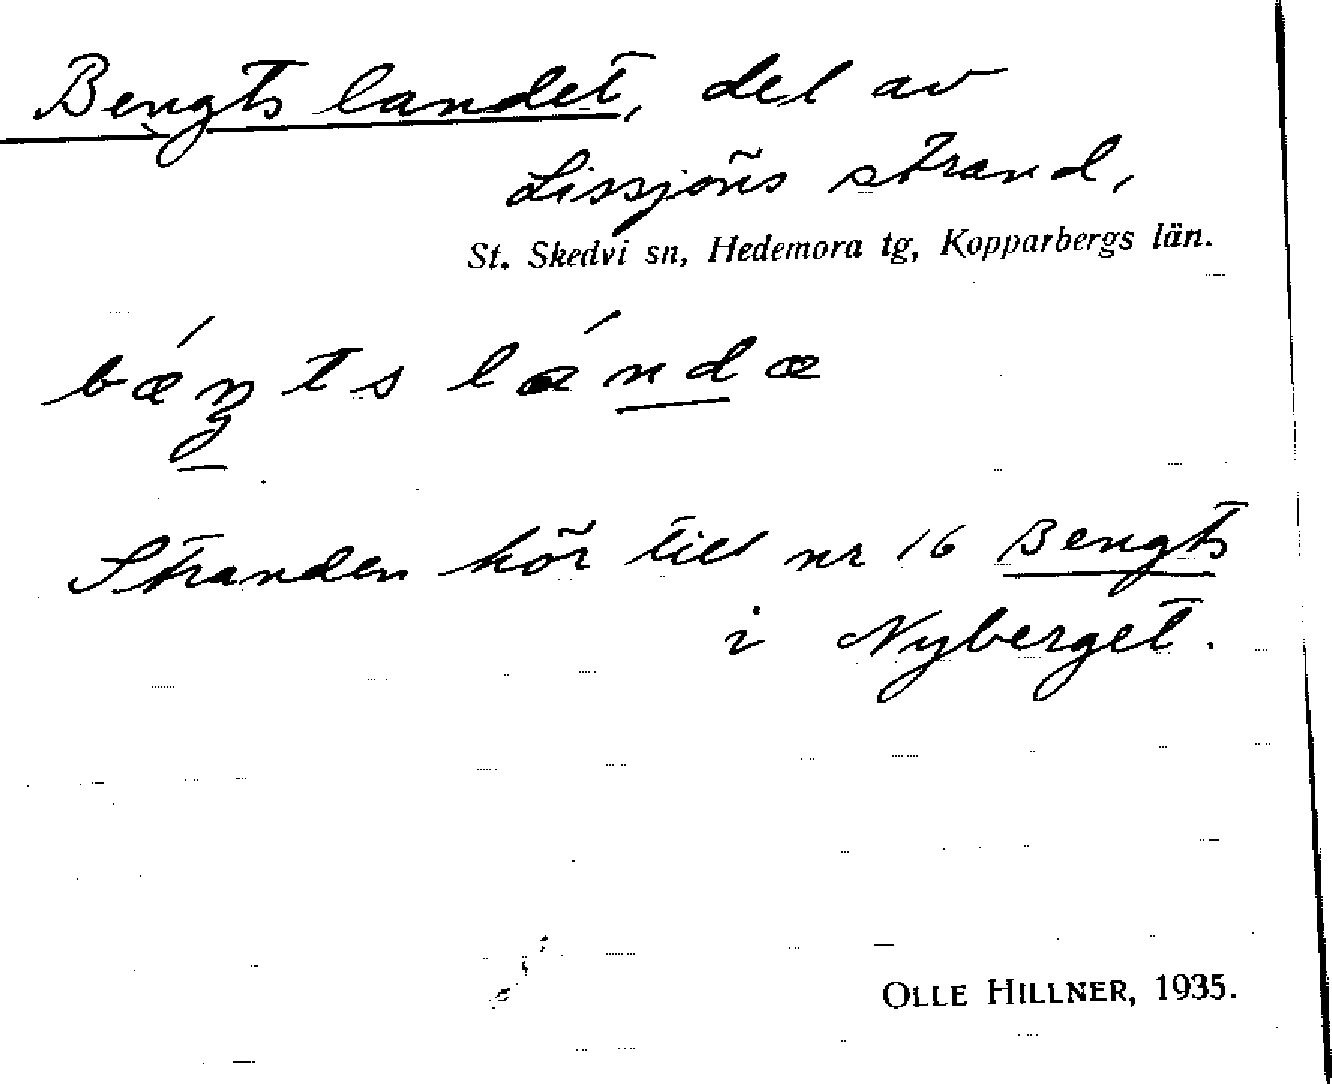 Bengtslandet, del av
Lissjöns strand,
St. Skedvi sn, Hedemora tg, Kopparbergs län.
bǽŋts lándæ
Stranden hör till nr 16 Bengts
i Nyberget.
OLLE HILLNER, 1935.